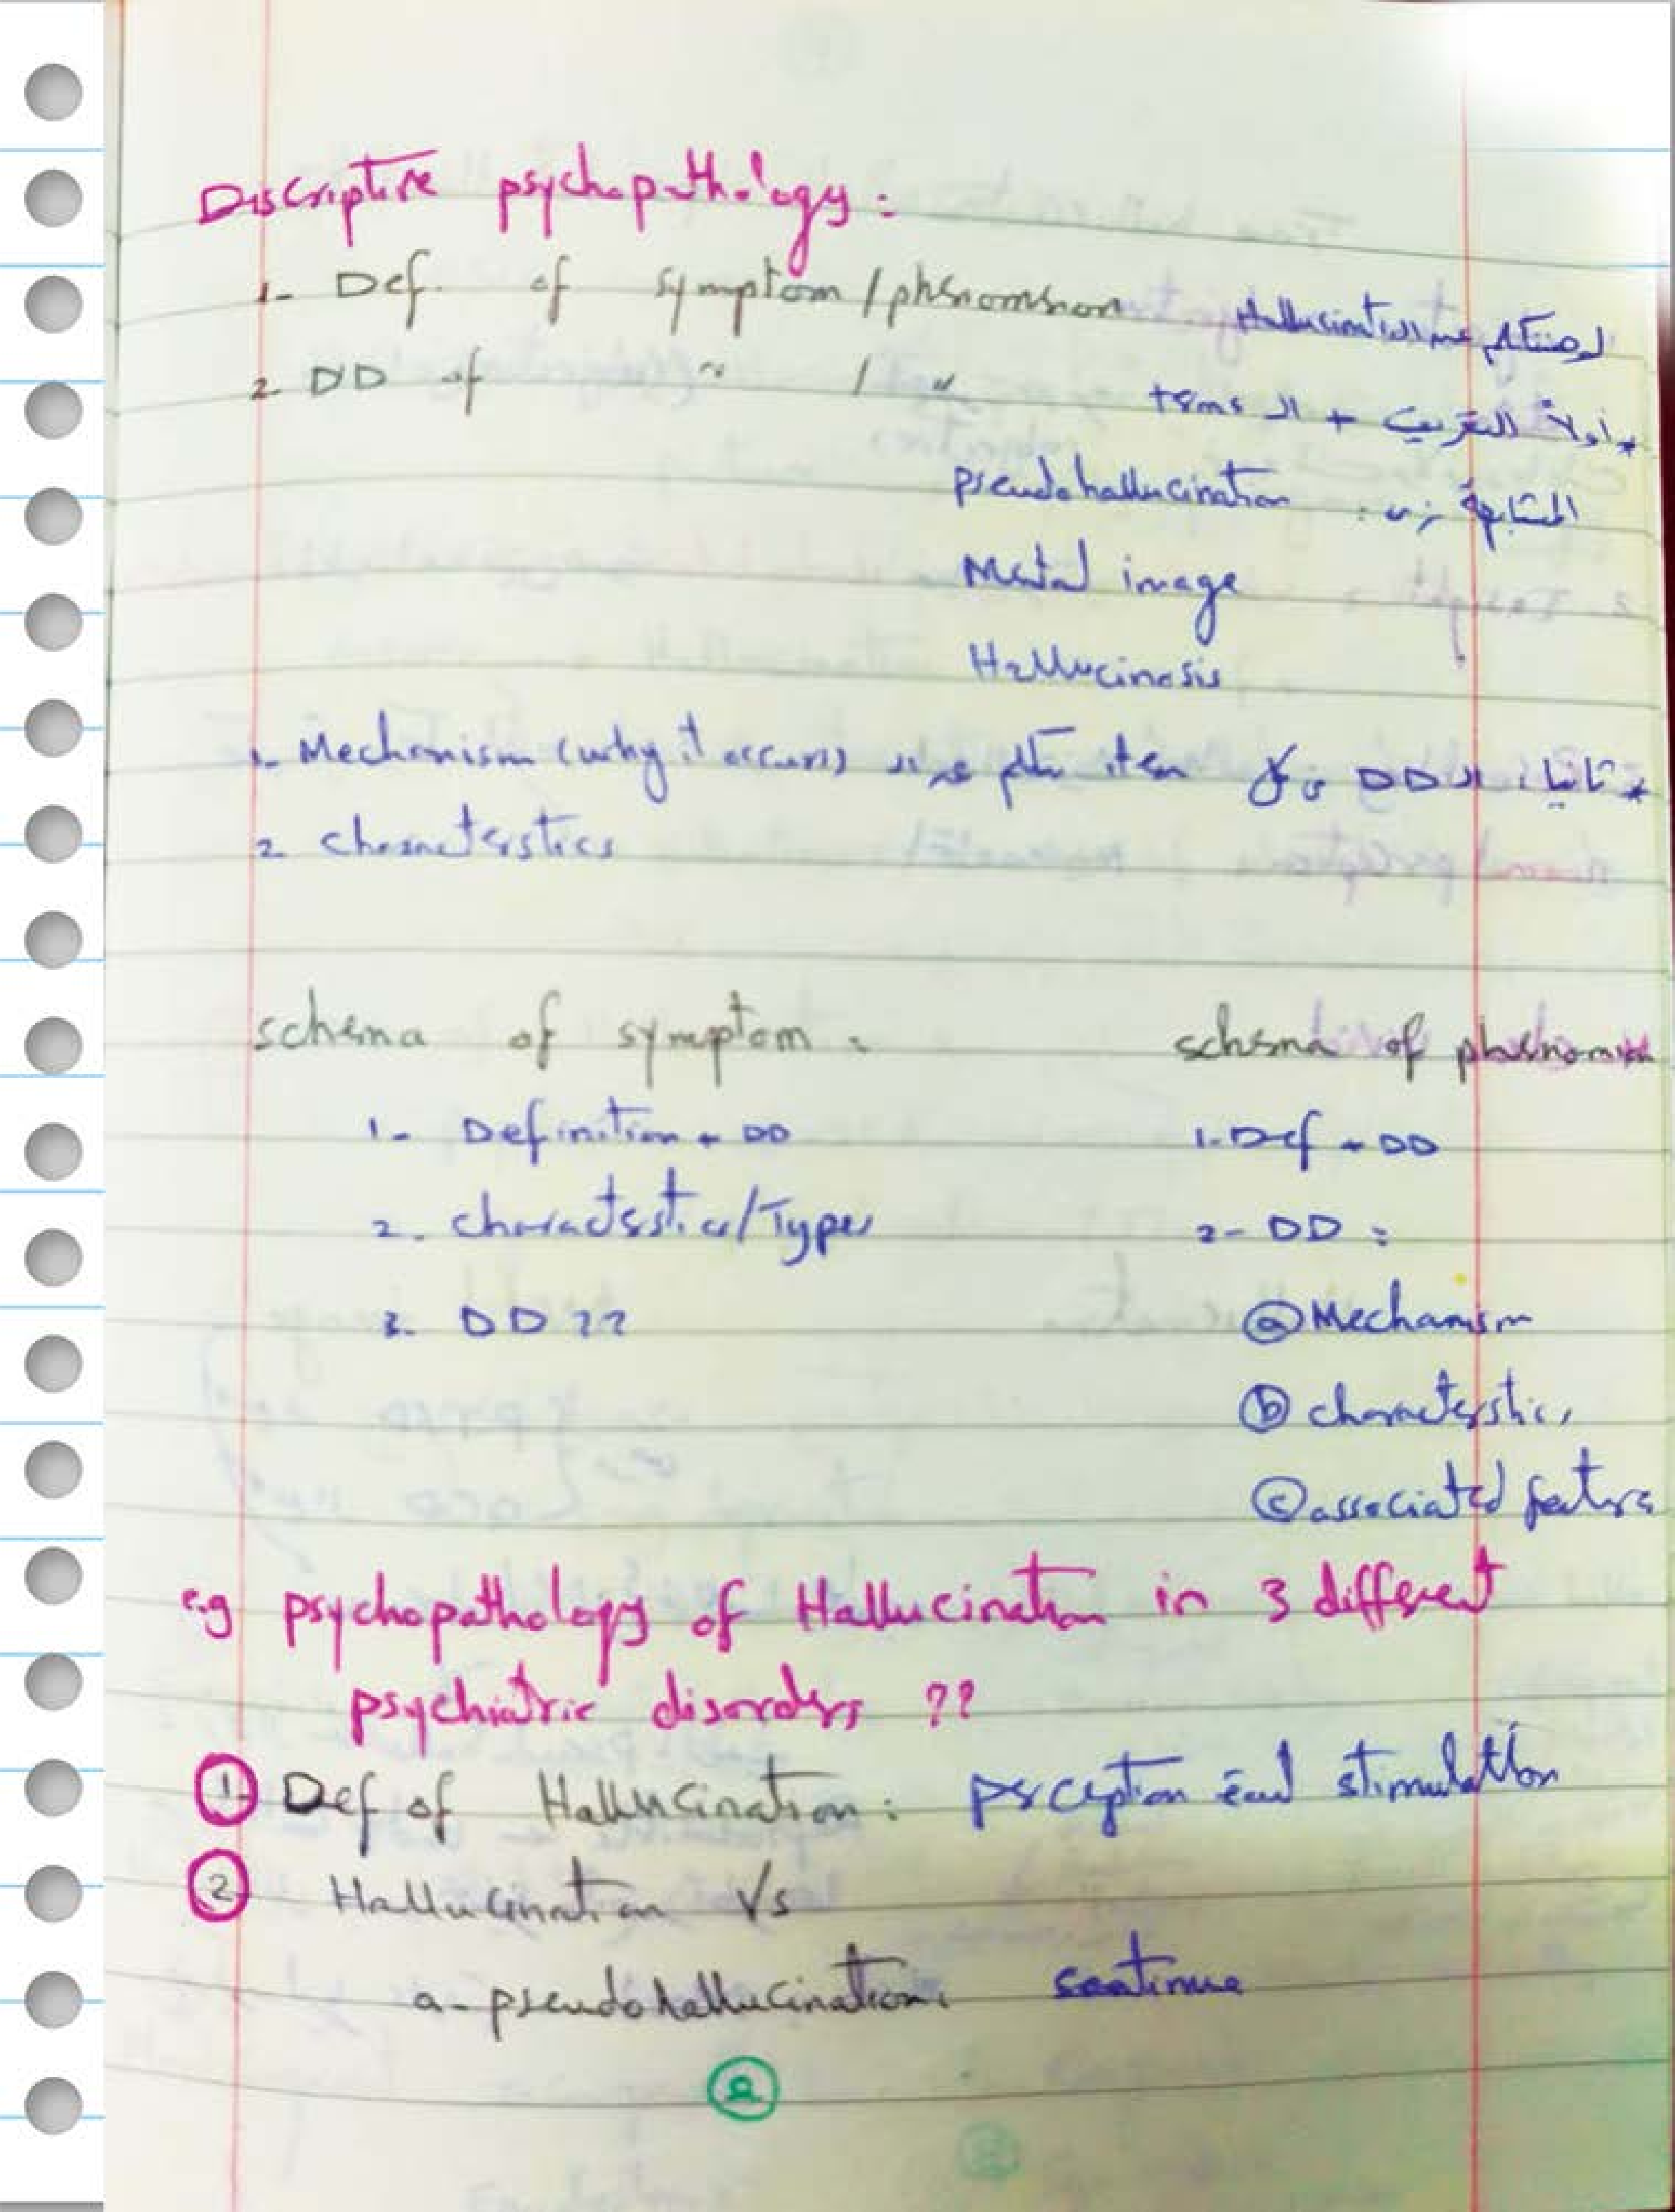 Descriptive psychopathology:
1- Def. of symptom / phenomenon
لو هنتكلم عن الـ Hallucination
2- DD of " / "
* أولاً التعريف + الـ terms
المتشابهة زى :
pseudohallucination
Mental image
Hallucinosis
* ثانيا : الـ DD فى كل item نتكلم عن الـ
1- Mechanism (why it occurs)
2- characterstics
schema of symptom :
1- Definition + DD
2- characterstics/Types
3- DD ??
schema of phenomena
1- Def + DD
2- DD :
ⓐ Mechanism
ⓑ characterstics
ⓒ associated feature
e.g psychopathology of Hallucination in 3 different
psychiatric disorders ??
① Def of Hallucination: perception stimulation
② Hallucination Vs
a- pseudohallucination: